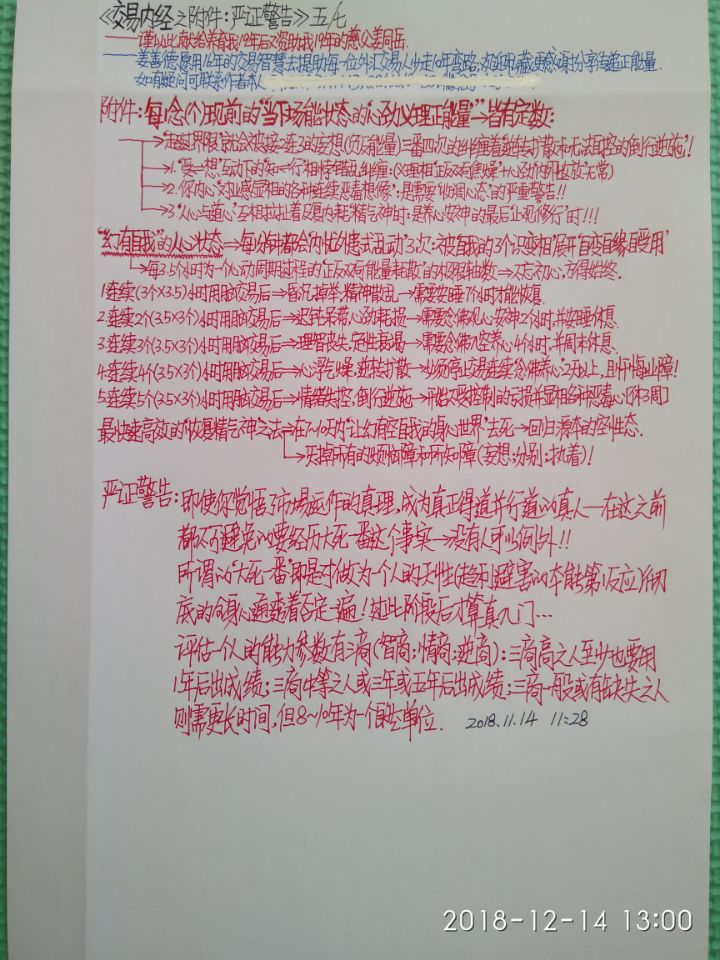 《交易内经之附件:严证警告》五/七
——谨以此献给养育我19年后又资助我19年的慈父姜同岳.
——姜善德愿用16年的交易智慧去提助每一位外汇交易人少走10年弯路,
如有疑问可联系作者本人
附件:每1念(个)现前的"当下场能状态的"心动义理正能量"→皆有定数:
→1."要一想"互动下的"知一行"相悖错乱纠缠:(义理相"正反两有焦燥"十心动"内开放放无常)
→2.你内心"交业感显相的各种连续恶毒想像":是需要"收润心态"的严重警告!!
→3."人心与道心"互相拉扯着反复内耗"精气神"时:是养心安神的最后止观修行"时!!!
"幻有自我"的人心状态⇒每1分钟都会"内忧外患式乱动"3次:
→每3.5小时为一个心动周期过程的"正反两有能量耗散"的极限轴数→不忘初心,方得始终.
1.连续(3个×3.5)小时用脑交易后⇒昏沉掉举,精神散乱→需要安睡7小时才能恢复.
2.连续2个(3.5×3个)小时用脑交易后⇒迟钝呆滞,心动耗损→需要念佛观心安神2小时,并安睡休息.
3.连续3个(3.5×3个)小时用脑交易后⇒理智丧失,定性衰竭→需要念佛入空养心4小时,并周末休息.
4.连续4个(3.5×3个)小时用脑交易后⇒心浮气燥,逆转打散→必须停止交易连续念佛养心"2天以上,且忏悔业障!
5.连续5个(3.5×3个)小时用脑交易后⇒情绪失控,倒行逆施→开始不受控制的亏损并显相各种恶毒心!【休3周】
最快速高效的"恢复精气神之法→在7~10天内"让幻有空自我的身心世界"去死→回归源本的空性态.
→灭掉所有的烦恼障和所知障(妄想;分别;执着)!
严证警告:即使你觉悟了市场运作的真理,成为真正得道并行道的真人—在这之前
都不可避免的要经历大死一番这个事实→没有人可以例外!!
所谓的"大死一番"即是对做为一个人的天性(趋利避害的本能第1反应)彻
底的从身心通透着否定一遍!过此阶段后才算真入门...
评估一个人的能力参数有三商(智商;情商;逆商):三商高之人至少也要用
1年后出成绩;三商中等之人或三年或五年后出成绩;三商一般或有缺失之人
则需更长时间,但8~10年为一个尽头单位.  2018.11.14  11:28
2018-12-14 13:00